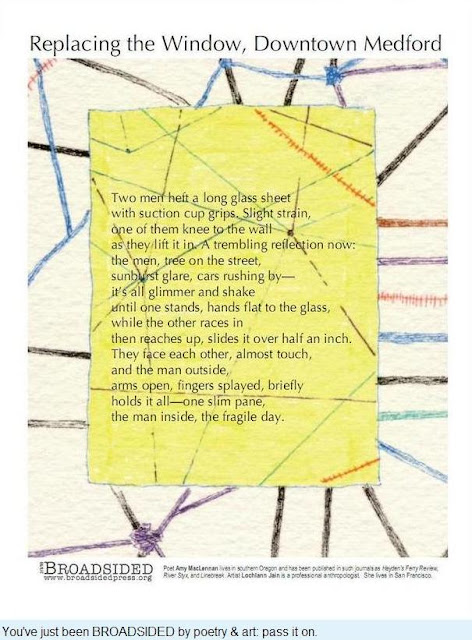 Replacing the Window, Downtown Medford
Two men heft a long glass sheet
with suction cup grips. Slight strain,
one of them knee to the wall
as they lift it in. A trembling reflection now:
the men, tree on the street,
sunburst glare, cars rushing by—
it's all glimmer and shake
until one stands, hands flat to the glass,
while the other races in
then reaches up, slides it over half an inch.
They face each other, almost touch,
and the man outside,
arms open, fingers splayed, briefly
holds it all—one slim pane,
the man inside, the fragile day.
BROADSIDED
www.broadsidedpress.org
Poet Amy MacLennan lives in southern Oregon and has been published in such journals as Hayden's Ferry Review,
River Styx, and Linebreak. Artist Lochlann Jain is a professional anthropologist. She lives in San Francisco.
You've just been BROADSIDED by poetry & art: pass it on.